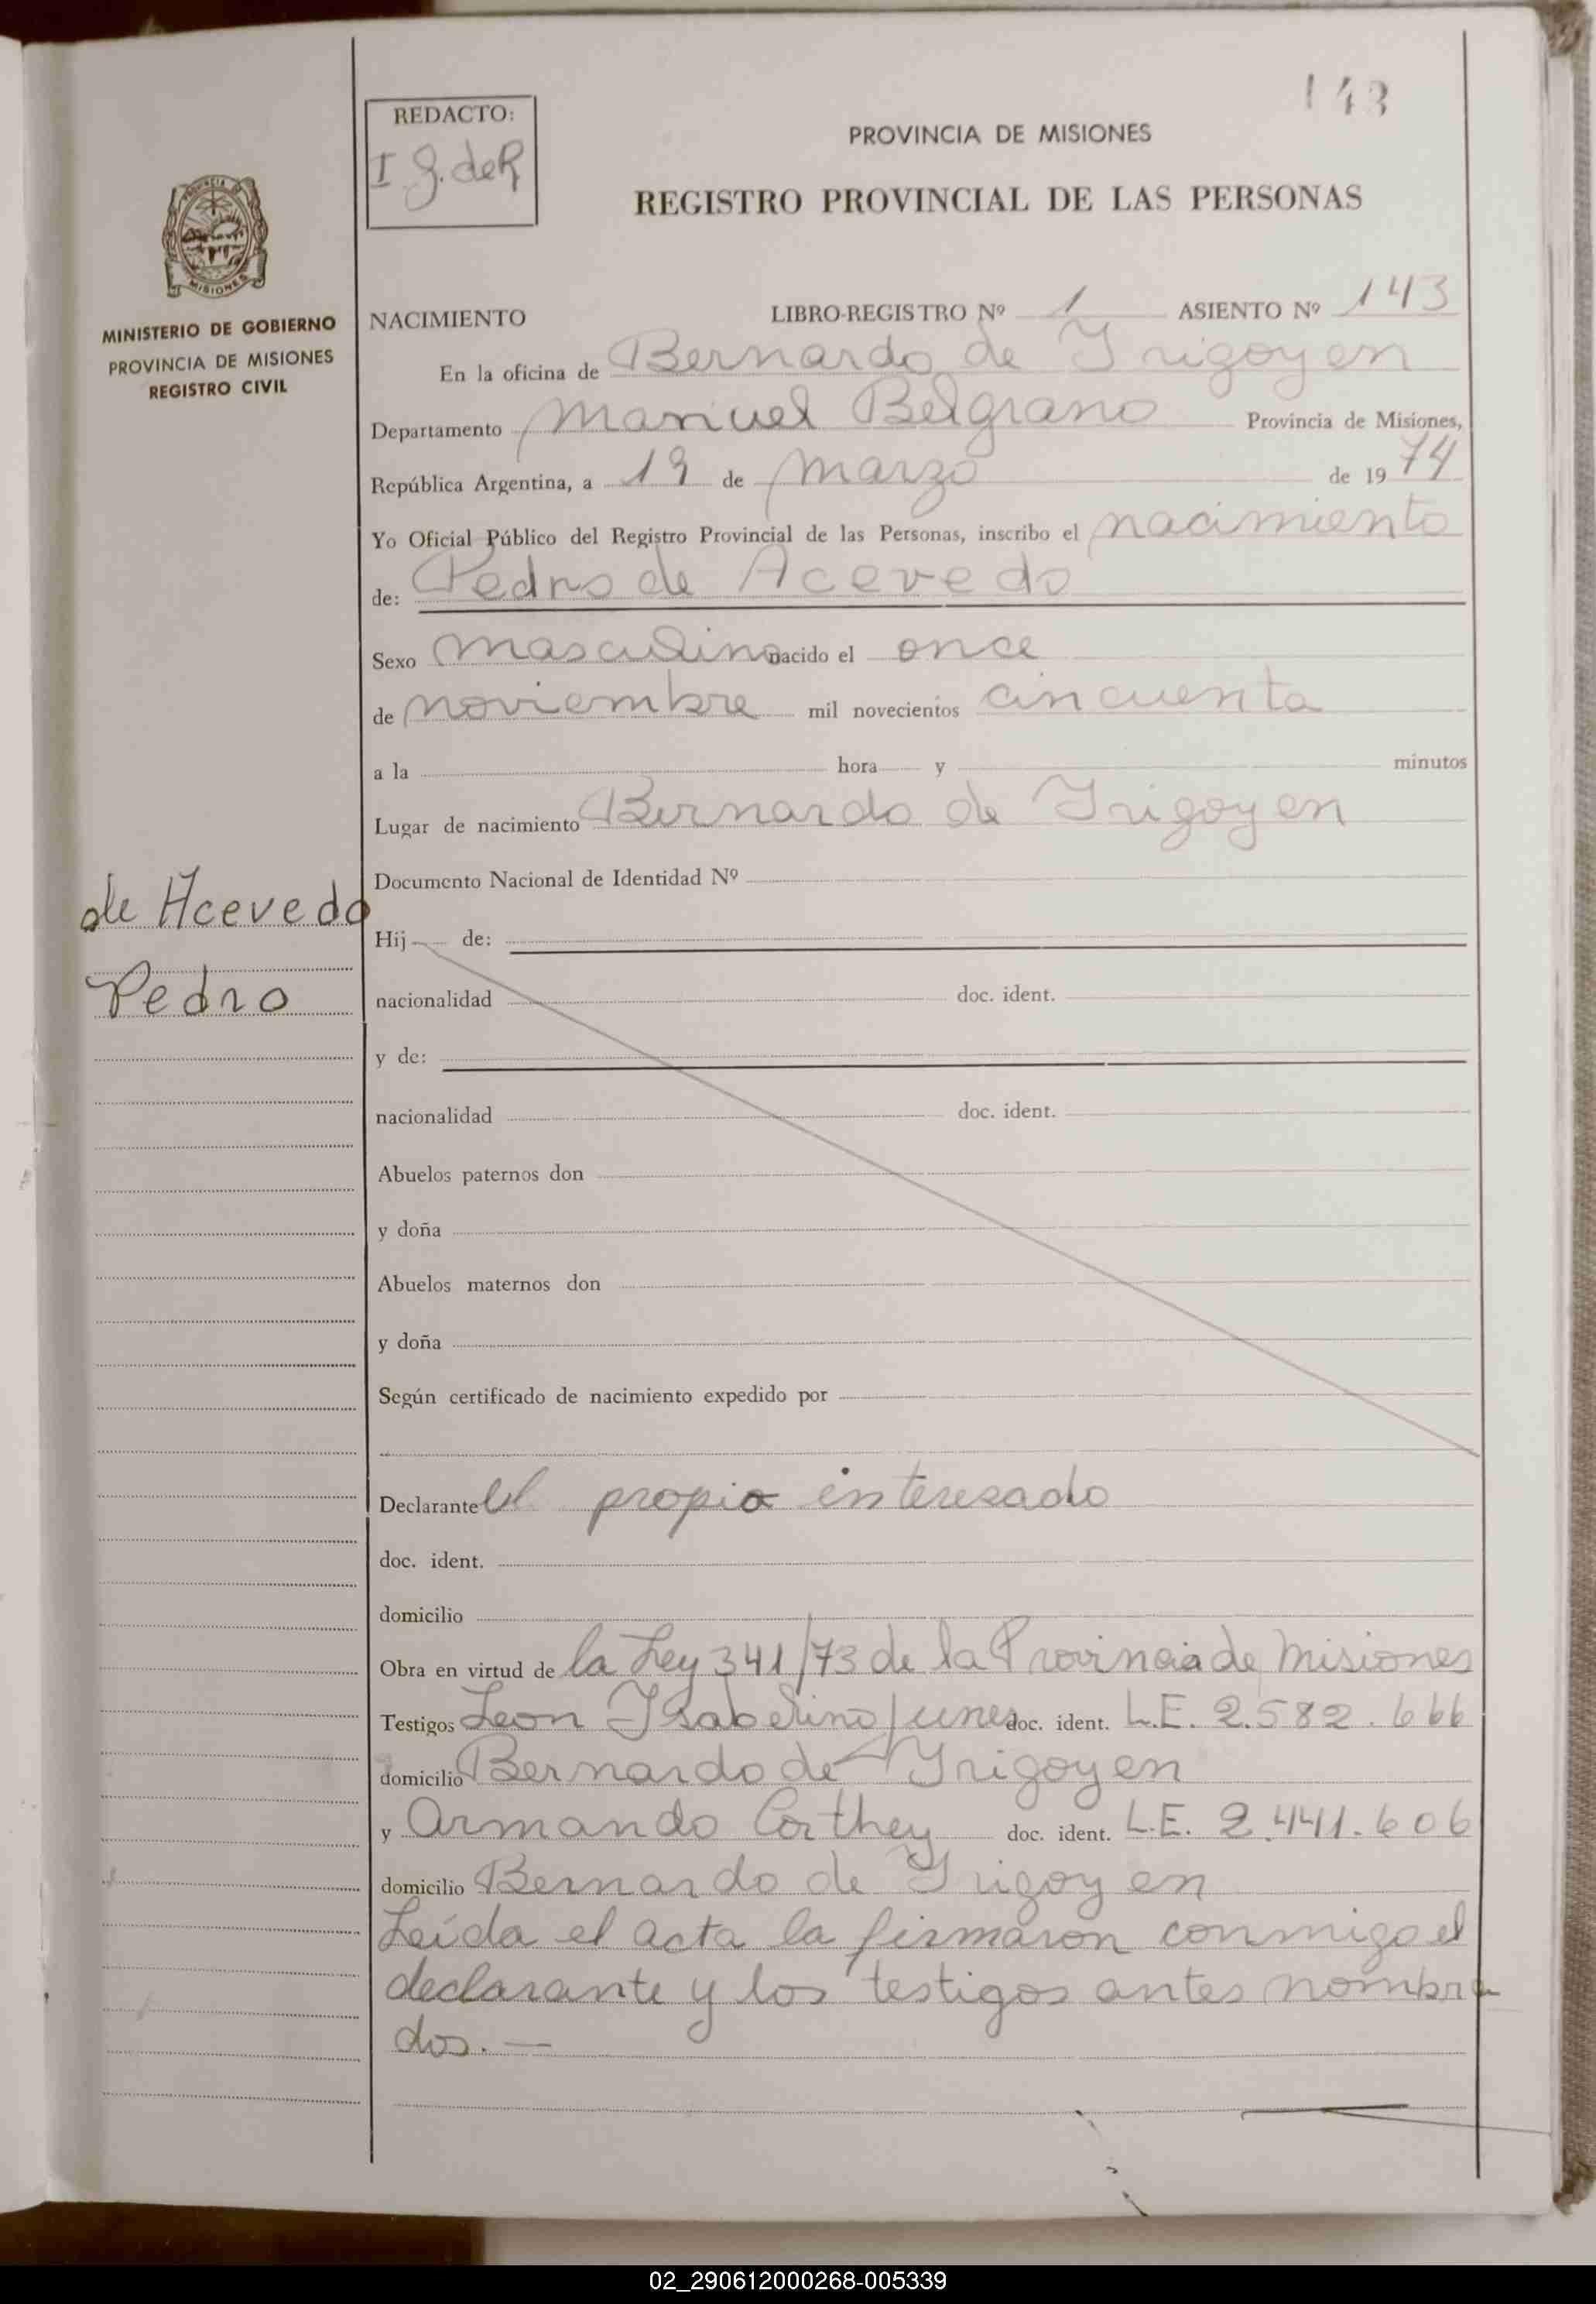 143
REDACTO:
I g. de R
PROVINCIA DE MISIONES
REGISTRO PROVINCIAL DE LAS PERSONAS
PROVINCIA DE
MISIONES
MINISTERIO DE GOBIERNO
PROVINCIA DE MISIONES
REGISTRO CIVIL
NACIMIENTO LIBRO-REGISTRO Nº 1 ASIENTO Nº 143
En la oficina de Bernardo de Irigoyen
Departamento Manuel Belgrano Provincia de Misiones,
República Argentina, a 19 de marzo de 1974
Yo Oficial Público del Registro Provincial de las Personas, inscribo el nacimiento
de: Pedro de Acevedo
Sexo masculino nacido el once
de noviembre mil novecientos cincuenta
a la hora y minutos
Lugar de nacimiento Bernardo de Irigoyen
Documento Nacional de Identidad Nº
de Acevedo
Hij de:
Pedro
nacionalidad doc. ident.
y de:
nacionalidad doc. ident.
Abuelos paternos don
y doña
Abuelos maternos don
y doña
Según certificado de nacimiento expedido por
Declarante el propio interesado
doc. ident.
domicilio
Obra en virtud de la Ley 341/73 de la Provincia de Misiones
Testigos Leon Isabelino Junes doc. ident. L.E. 2.582.666
domicilio Bernardo de Irigoyen
y Armando Corthey doc. ident. L.E. 2.441.606
domicilio Bernardo de Irigoyen
Leída el acta la firmaron conmigo el
declarante y los testigos antes nombra
dos.—
02_290612000268-005339